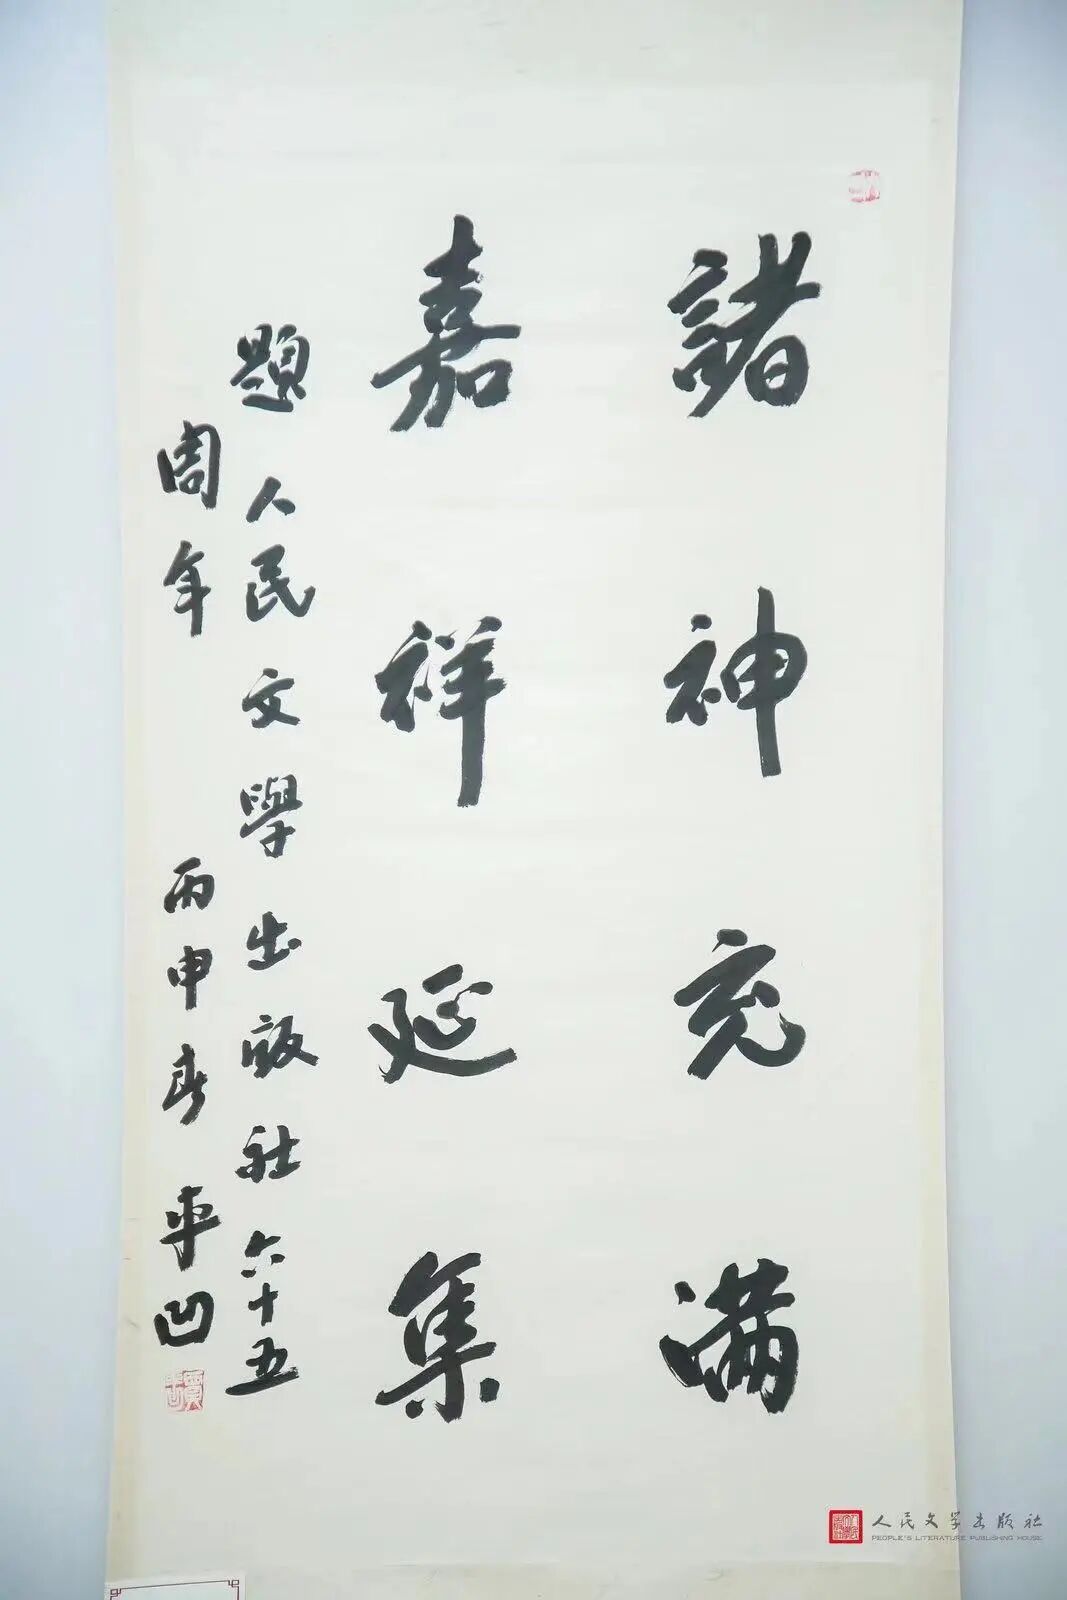 諸神充滿
嘉祥延集
題人民文學出版社六十五
周年 丙申春 平凹
人民文学出版社
PEOPLE'S LITERATURE PUBLISHING HOUSE